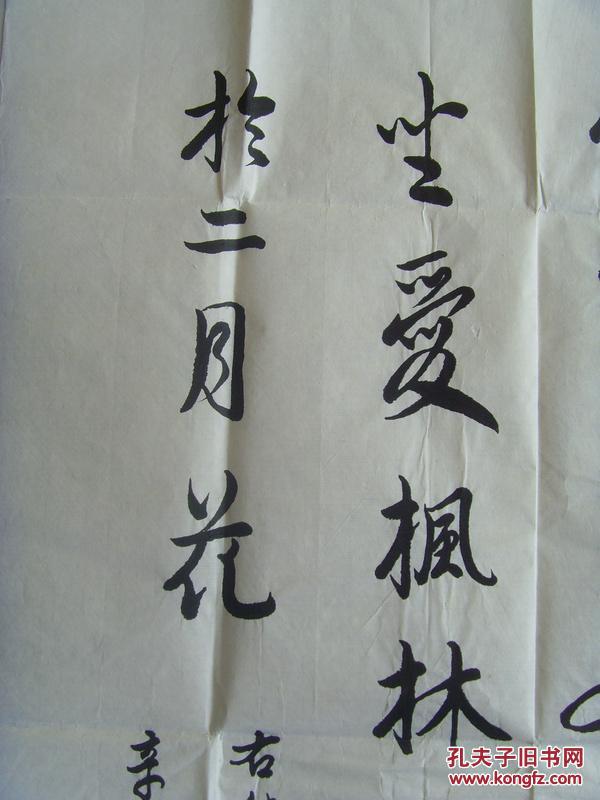 坐愛楓林
於二月花
右
辛
孔夫子旧书网
www.kongfz.com